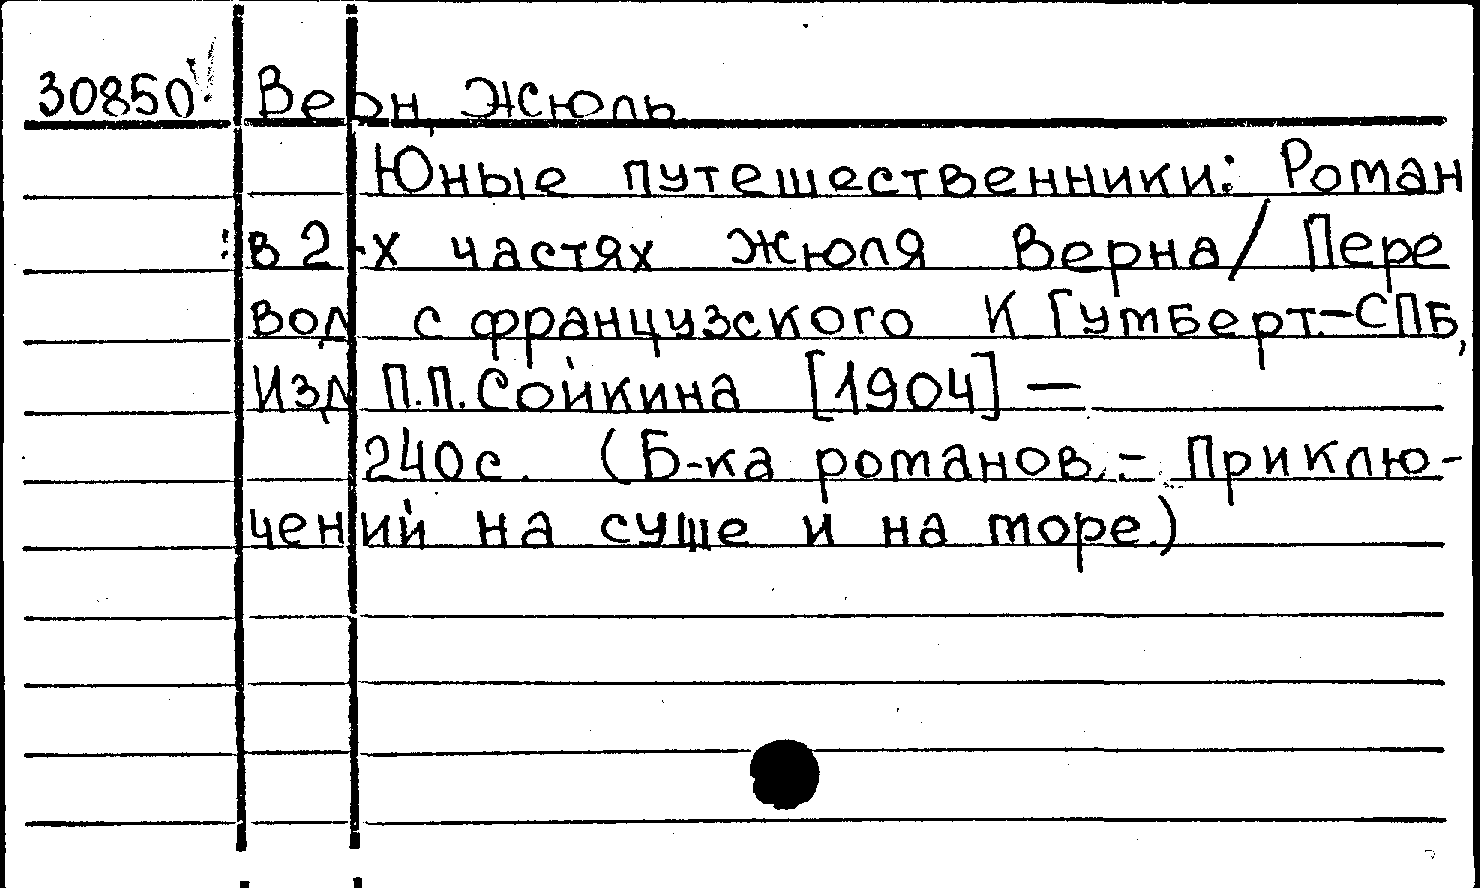 30850 Верн, Жюль
Юные путешественники: Роман
в 2-х частях Жюля Верна/ Пере
вод с французского К Гумберт.-СПБ,
Изд П.П.Сойкина [1904] —
240с. (Б-ка романов.- Приклю-
чений на суше и на море.)